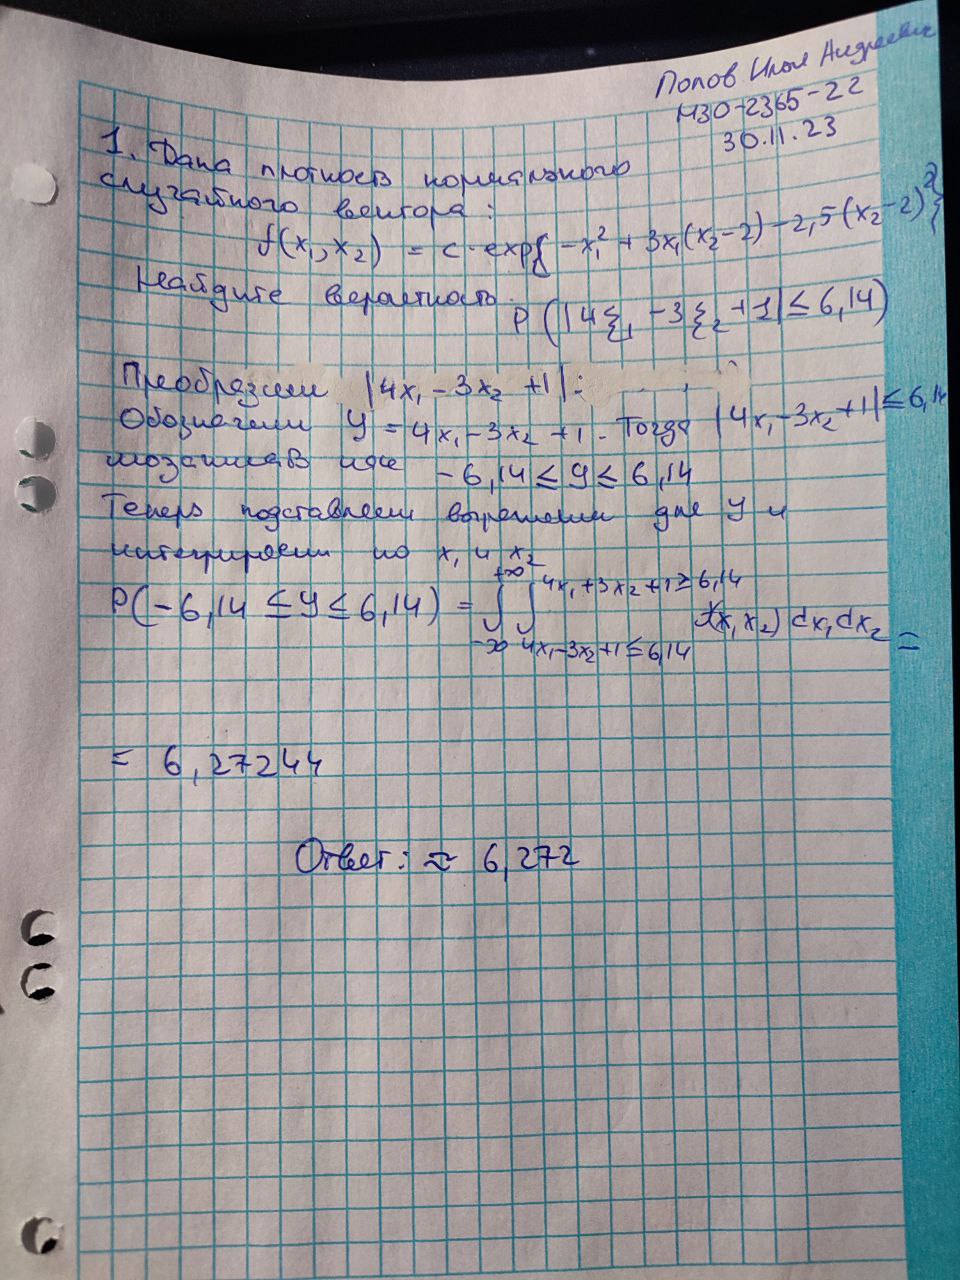 Попов Илья Андреевич
М3О-236Б-22
30.11.23
1. Дана плотность нормального
случайного вектора:
f(x₁, x₂) = c · exp{ -x₁² + 3x₁(x₂-2) - 2,5(x₂-2)²}
Найдите вероятность
P(|4ξ₁ - 3ξ₂ + 1| ≤ 6,14)
Преобразуем |4x₁ - 3x₂ + 1|:
Обозначим y = 4x₁ - 3x₂ + 1. Тогда |4x₁ - 3x₂ + 1| ≤ 6,14
-6,14 ≤ y ≤ 6,14
Теперь подставляем выражения для y и
интегрируем по x₁ и x₂
P(-6,14 ≤ y ≤ 6,14) = ∫₋∞^+∞ ∫_{4x₁-3x₂+1≤6,14}^{4x₁+3x₂+1≥6,14} f(x₁x₂) dx₁dx₂ =
= 6,27244
Ответ: ≈ 6,272